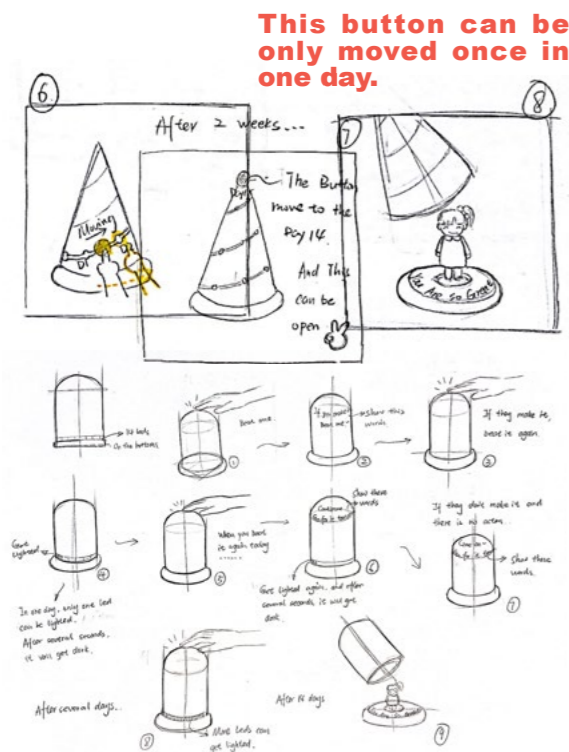 This button can be
only moved once in
one day.
6
After 2 weeks...
7
8
Moving
D1
The Button
move to the
Day 14.
And This
can be
open
You Are so Great
On the bottom
Beat once
①
Show this
words
②
If they make it,
beat it again.
③
④
In one day, only one led
can be lighted.
After several seconds,
it will get dark.
When you beat
it again today
......
⑤
Show these
words
Get lighted again, and after
several seconds, it will get
dark.
⑥
If they don't make it and
there is no action..
Show these
words.
⑦
After several days...
More leds can
get lighted.
⑧
After 14 days
⑨